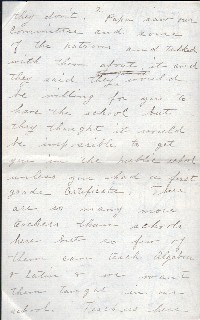 they don't." Papa saw our
committee and some
of the patrons and talked
with them about it and
they said they would
be willing for you to
have the school but
they thought it would
be impossible to get
you in the public school
unless you had a first
grade Certificate. There
are so many more
teachers than schools
here but so few of
them can teach Algebra
& Latin & we want
them taught in our
school. Teachers here